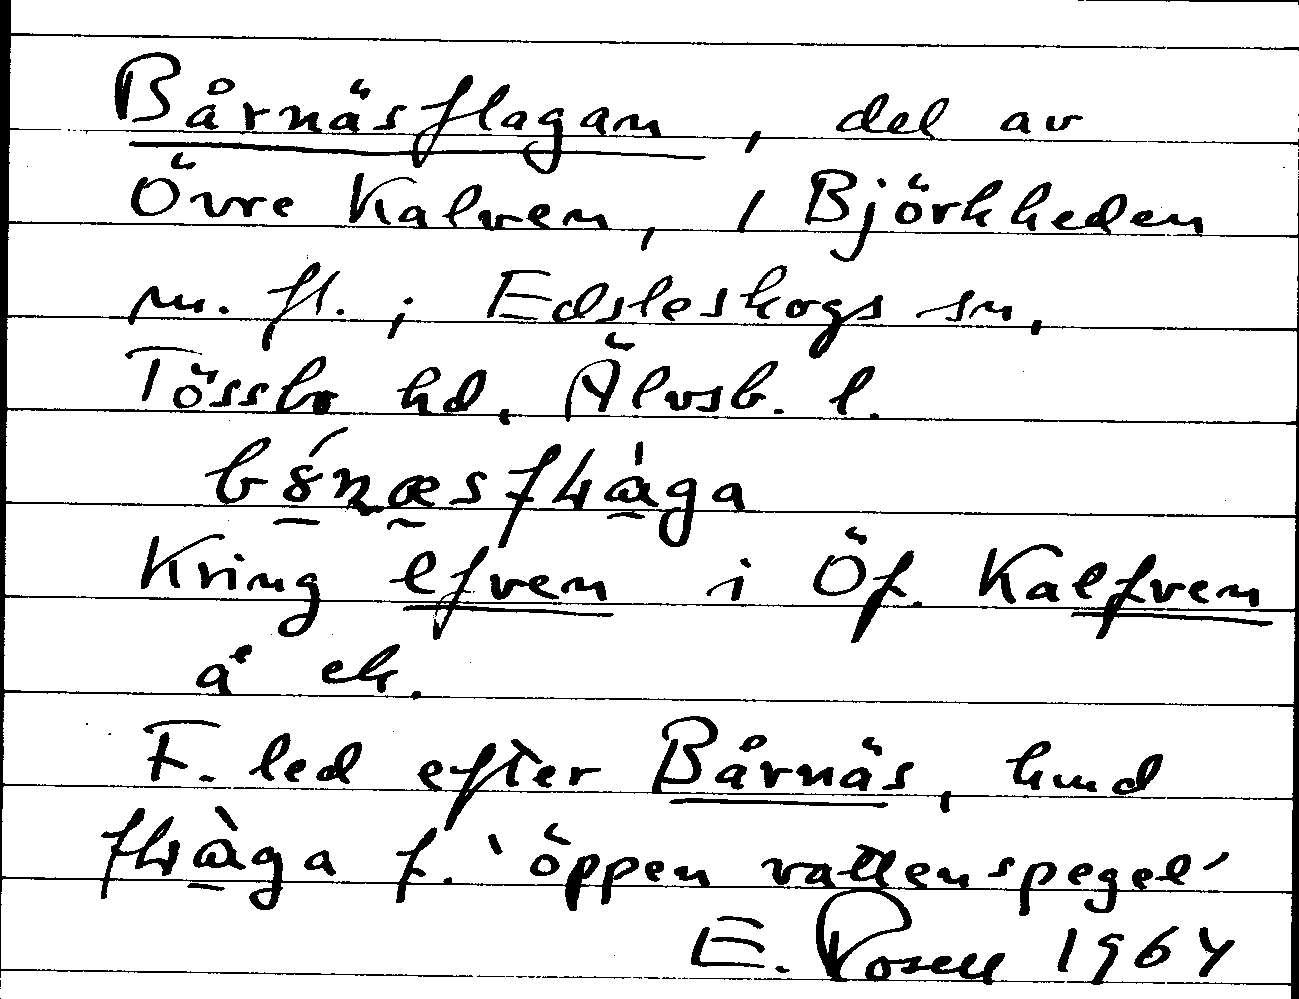 Bårnäsflagan, del av
Övre Kalven, / Björkheden
m. fl.; Edsleskogs sn,
Tössbo hd, Älvsb. l.
Kring elfven i Öf. Kalfven
å ek.
F. led efter Bårnäs, hmd
f. 'öppen vattenspegel'
E. Rosell 1964